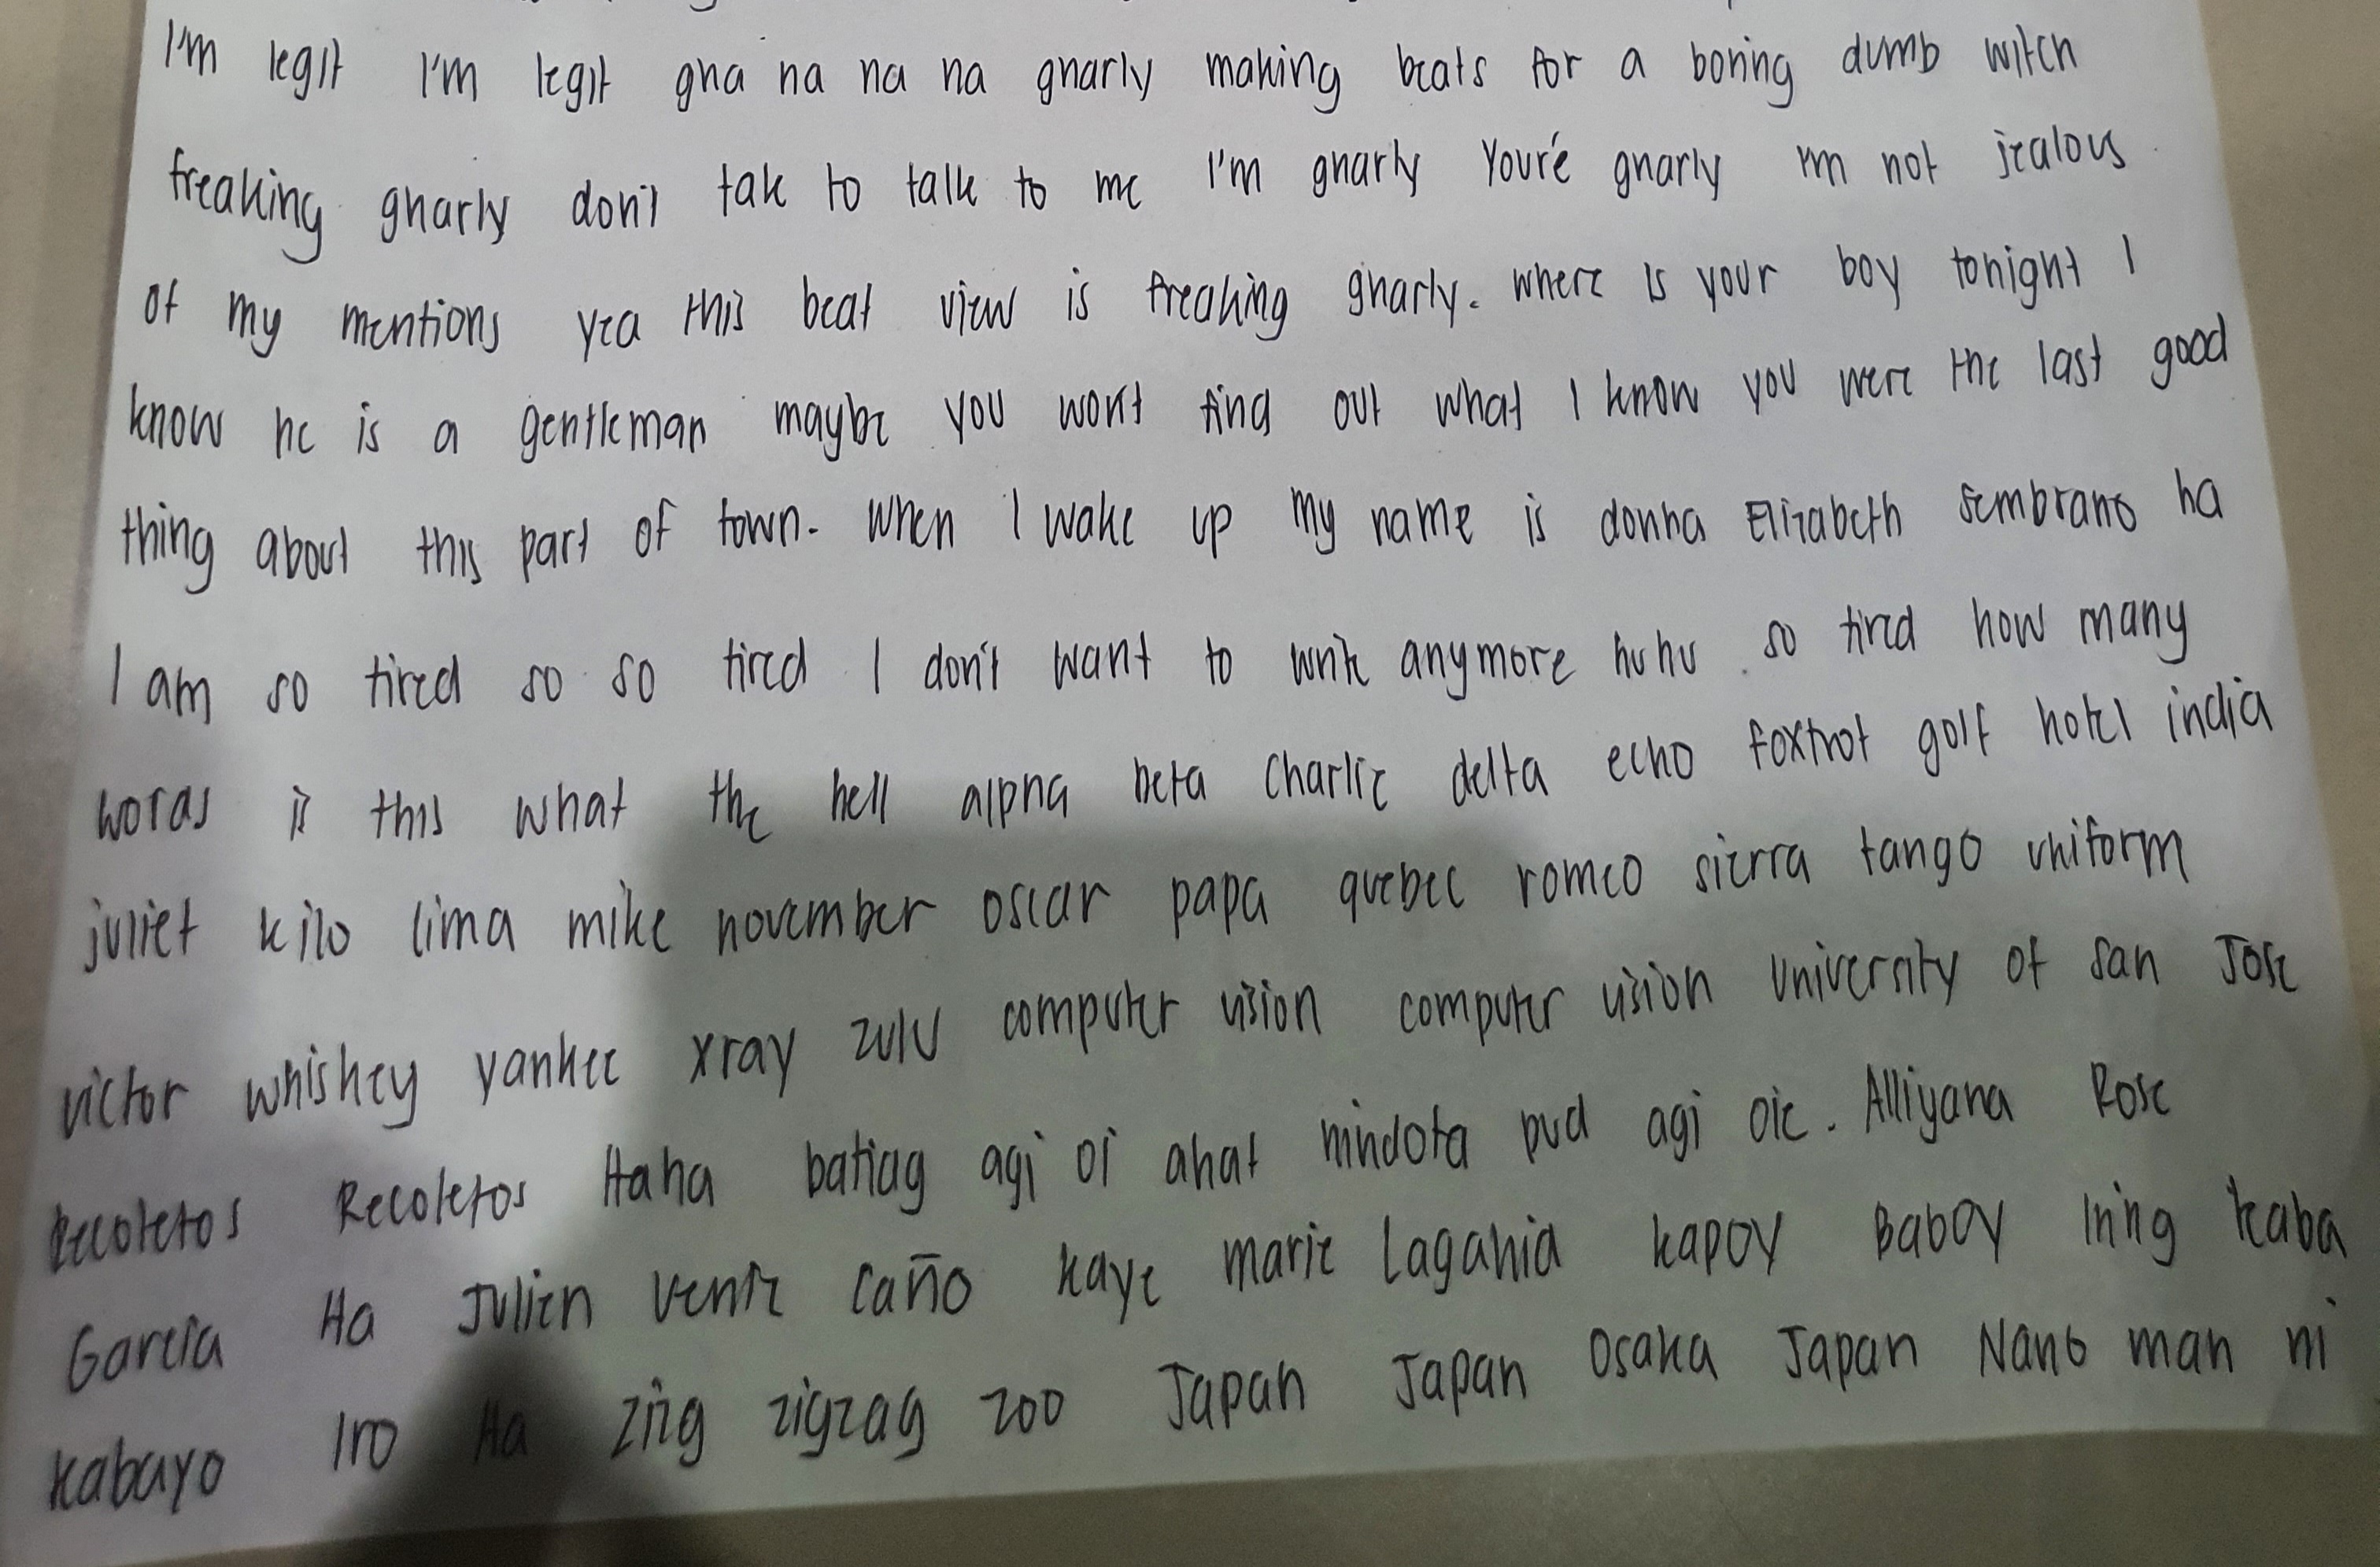 I'm legit I'm legit gna na na na gnarly making beats for a boring dumb witch
freaking gnarly don't take to talk to me I'm gnarly Your'e gnarly I'm not jealous
of my mentions yea this beat view is freaking gnarly. where is your boy tonight I
know he is a gentleman maybe you wont find out what I know you were the last good
thing about this part of town. When I wake up my name is donna Elizabeth Sembrano ha
I am so tired so so tired I don't want to write anymore huhu so tired how many
words is this what the hell alpha beta Charlie delta echo foxtrot golf hotel india
juliet kilo lima mike november oscar papa quebec romeo sierra tango uniform
victor whiskey yankee xray zulu computer vision computer vision University of San Jose
Recoletos Recoletos Haha batiag agi oi ahat nindota pud agi oie. Alliyana Rose
Garcia Ha Julien Vente Caño Kaye marie Lagahid kapoy Baboy Ining kaba
Kabayo Iro Ha Zing zigzag zoo Japan Japan Osaka Japan Nano man ni